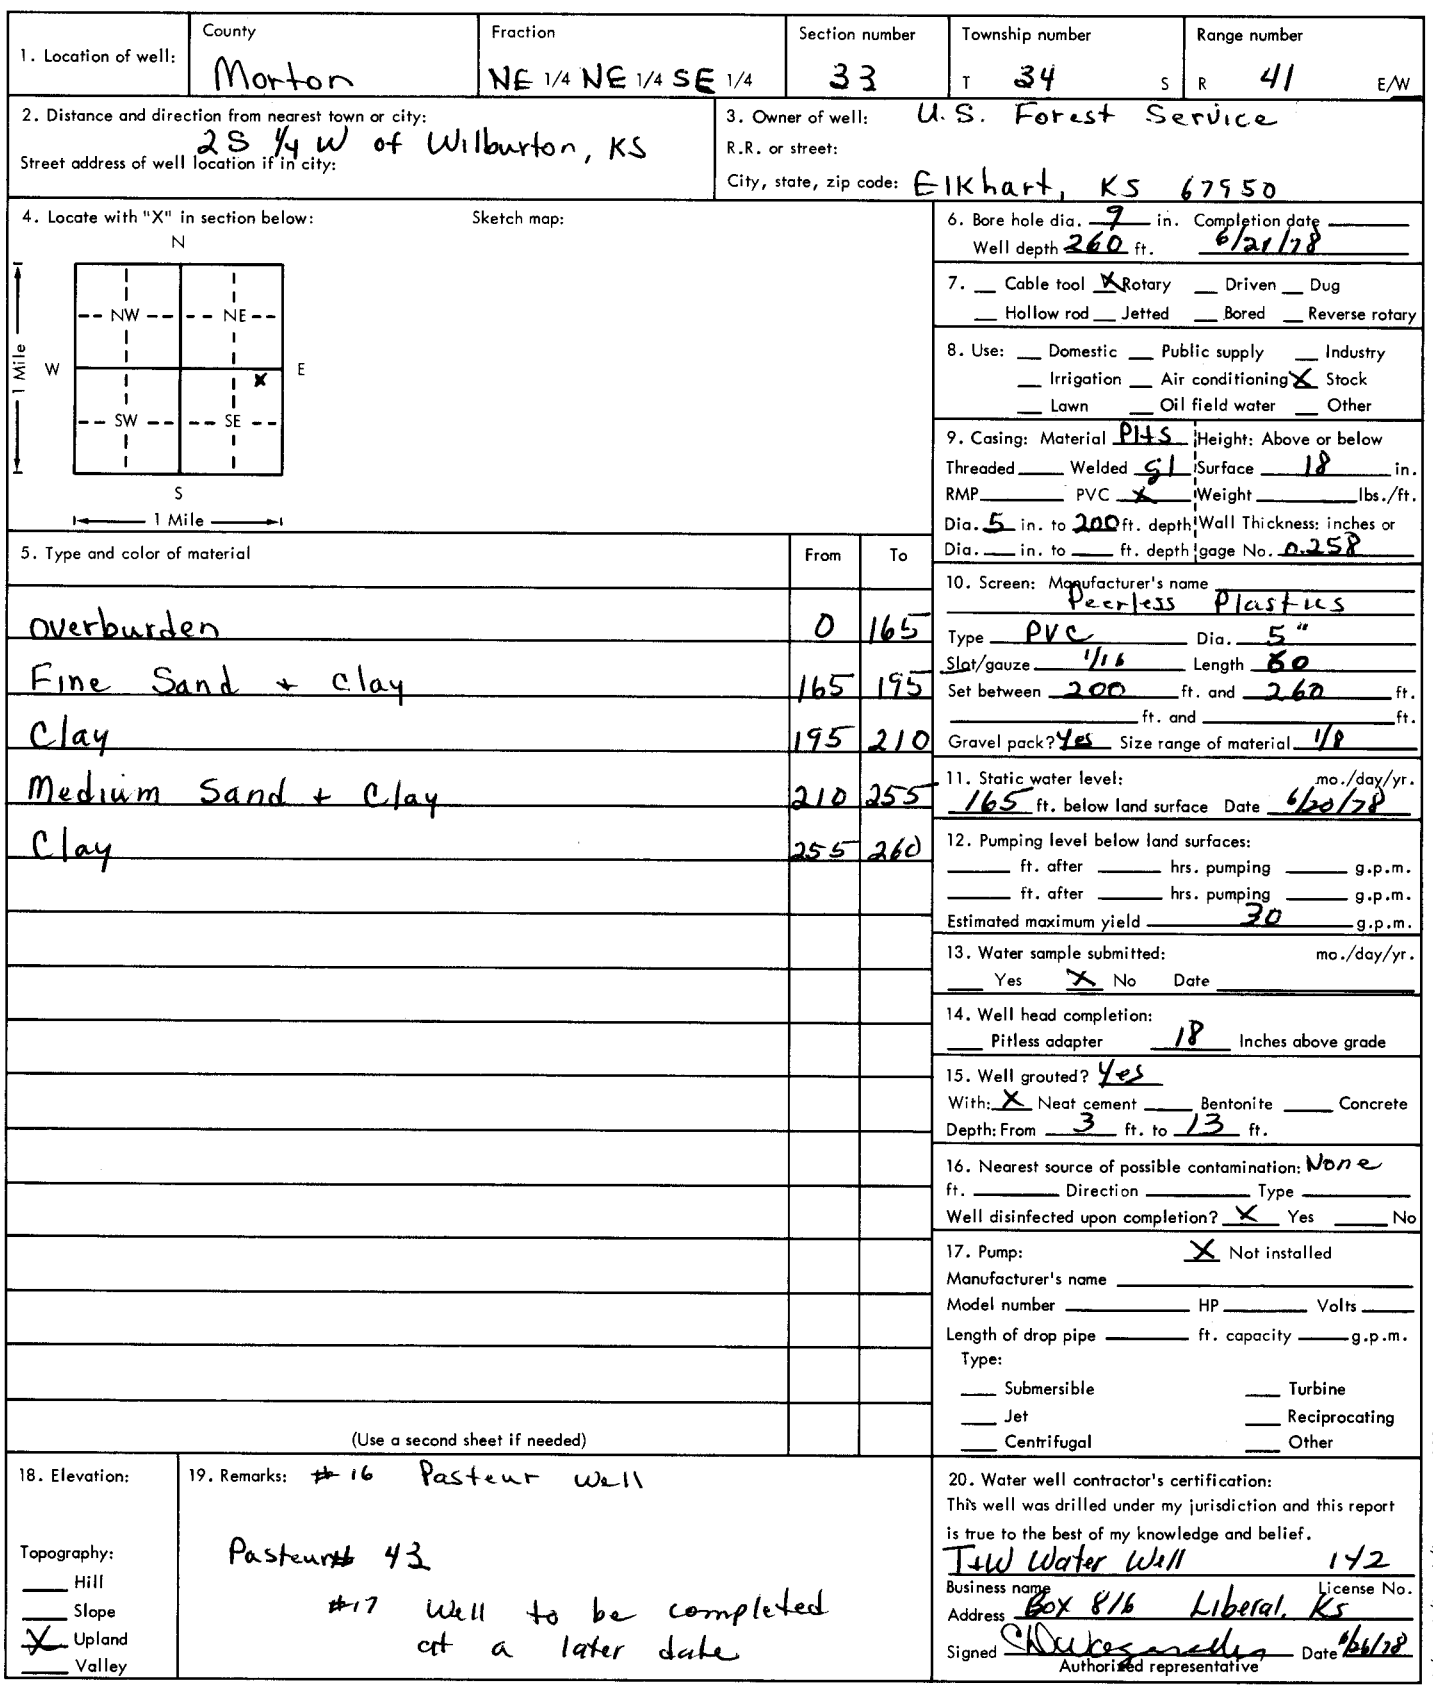 1. Location of well:
County
Morton
Fraction
NE 1/4 NE 1/4 SE 1/4
Section number
33
Township number
T 34 S
Range number
R 41 E/W
2. Distance and direction from nearest town or city:
2S 1/4 W of Wilburton, KS
Street address of well location if in city:
3. Owner of well: U.S. Forest Service
R.R. or street:
City, state, zip code: Elkhart, KS 67950
4. Locate with "X" in section below:
Sketch map:
N
NW NE
W E
X
SW SE
S
1 Mile
1 Mile
5. Type and color of material From To
Overburden 0 165
Fine Sand + Clay 165 195
Clay 195 210
Medium Sand + Clay 210 255
Clay 255 260
(Use a second sheet if needed)
6. Bore hole dia. 9 in. Completion date
Well depth 260 ft. 6/21/78
7. __ Cable tool X Rotary __ Driven __ Dug
__ Hollow rod __ Jetted __ Bored __ Reverse rotary
8. Use: __ Domestic __ Public supply __ Industry
__ Irrigation __ Air conditioning X Stock
__ Lawn __ Oil field water __ Other
9. Casing: Material Height: Above or below
Threaded ____ Welded gl Surface 18 in.
RMP ____ PVC X Weight ____ lbs./ft.
Dia. 5 in. to 200 ft. depth Wall Thickness: inches or
Dia. __ in. to __ ft. depth gage No. 0.258
10. Screen: Manufacturer's name
Peerless Plastics
Type PVC Dia. 5"
Slot/gauze 1/16 Length 60
Set between 200 ft. and 260 ft.
____ ft. and ____ ft.
Gravel pack? Yes Size range of material 1/8
11. Static water level: mo./day/yr.
165 ft. below land surface Date 6/20/78
12. Pumping level below land surfaces:
____ ft. after ____ hrs. pumping ____ g.p.m.
____ ft. after ____ hrs. pumping ____ g.p.m.
Estimated maximum yield 30 g.p.m.
13. Water sample submitted: mo./day/yr.
__ Yes X No Date ____
14. Well head completion:
__ Pitless adapter 18 Inches above grade
15. Well grouted? Yes
With: X Neat cement __ Bentonite __ Concrete
Depth: From 3 ft. to 13 ft.
16. Nearest source of possible contamination: None
ft. ____ Direction ____ Type ____
Well disinfected upon completion? X Yes __ No
17. Pump: X Not installed
Manufacturer's name ____
Model number ____ HP ____ Volts ____
Length of drop pipe ____ ft. capacity ____ g.p.m.
Type:
__ Submersible __ Turbine
__ Jet __ Reciprocating
__ Centrifugal __ Other
18. Elevation:
Topography:
__ Hill
__ Slope
X Upland
__ Valley
19. Remarks: #16 Pasteur Well
Pasteur# 43
#17 Well to be completed
at a later date
20. Water well contractor's certification:
This well was drilled under my jurisdiction and this report
is true to the best of my knowledge and belief.
T+W Water Well 142
Business name License No.
Address Box 816 Liberal, Ks
Signed Date 6/26/78
Authorized representative